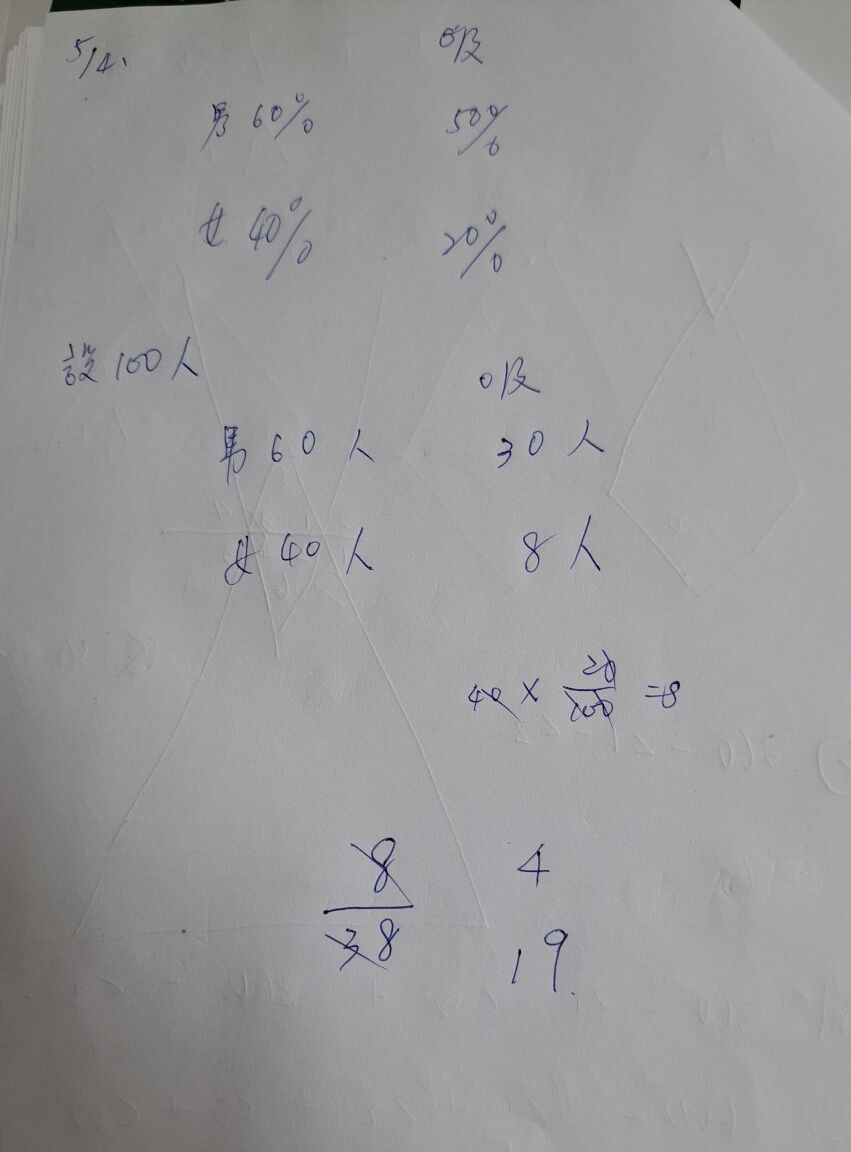 5/4. O段
男 60% 50%
女 40% 20%
設 100人
O段
男 60人 30人
女 40人 8人
40 × 20/100 = 8
8/38 4
19.